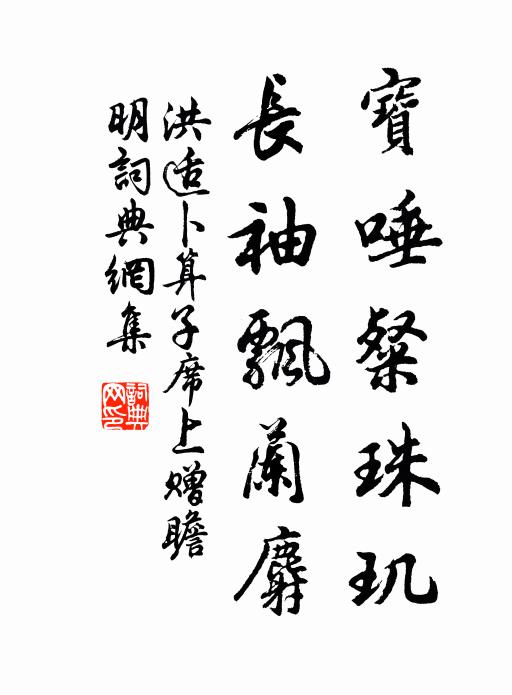 寶唾粲珠玑
長袖飄蘭麝
洪适卜算子席上赠瞻
明詞典網集
詞典网印